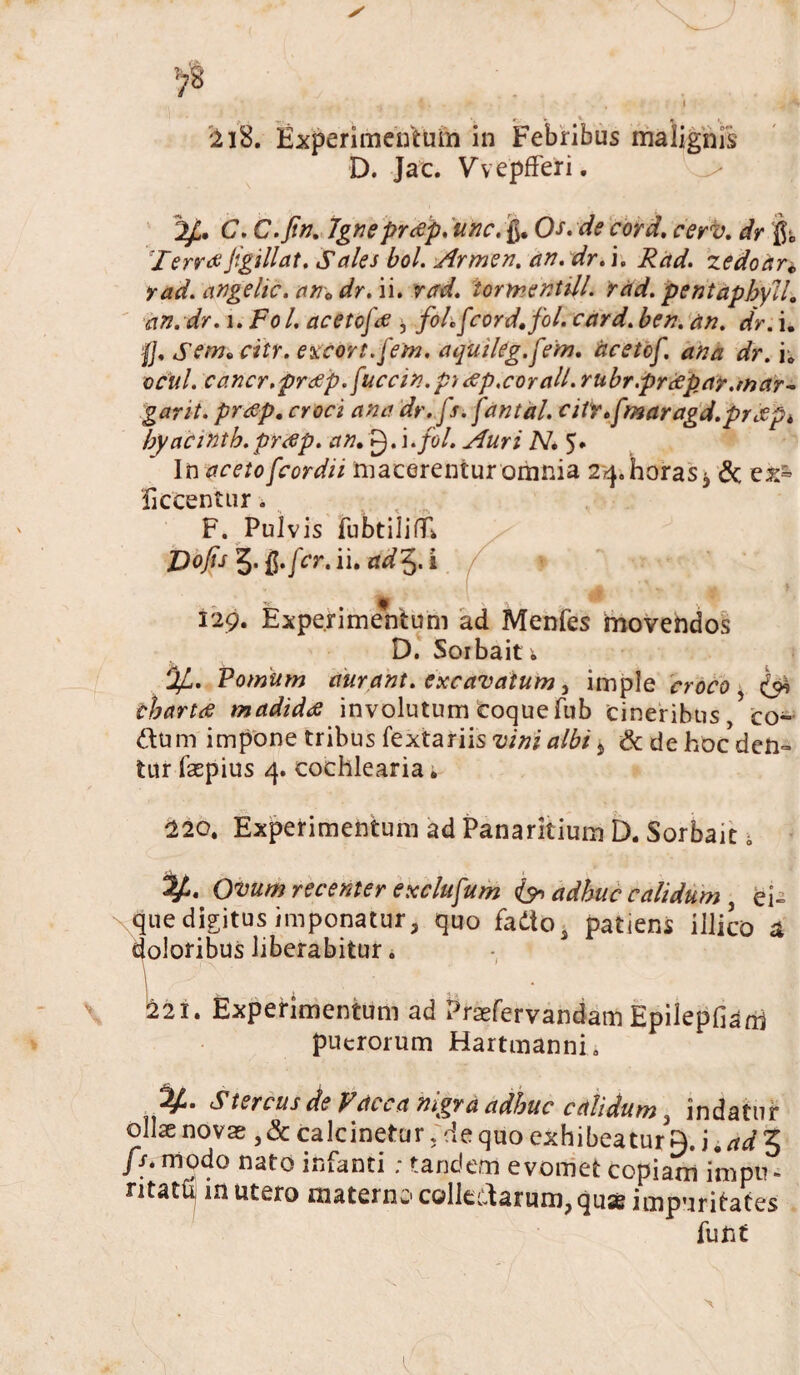 78
218. Experimentum in Febribus malignis
D. Jac. Vvepfferi.
♃. C. C. ſin. Igne præp. unc. ß. Os. de cord. cerv. dr ß.
Terræ ſigillat. Sales bol. Armen. an. dr. i. Rad. zedoar.
rad. angelic. an. dr. ii. rad. tormentill. rad. pentaphyll.
an. dr. 1. Fol. acetoſæ, fol. ſcord. fol. card. ben. an. dr. i.
ß. Sem. citr. excort. ſem. aquileg. ſem. acetoſ. ana dr. i.
ocul. cancr. præp. ſuccin. præp. corall. rubr. præpar. mar-
garit. præp. croci ana dr. ſs. ſantal. citr. ſmaragd. præp.
hyacinth. præp. an. ℈. i. fol. Auri N. 5.
In aceto ſcordii macerentur omnia 24. horas, & ex-
ſiccentur.
F. Pulvis ſubtiliſſ.
Doſis ʒ. ß. ſcr. ii. ad ʒ. i
129. Experimentum ad Menſes movendos
D. Sorbait.
♃. Pomum aurant. excavatum, imple croco, &
chartæ madidæ involutum coque ſub cineribus, co-
ctum impone tribus ſextariis vini albi, & de hoc den-
tur ſæpius 4. cochlearia.
220. Experimentum ad Panaritium D. Sorbait.
♃. Ovum recenter excluſum & adhuc calidum, ei-
que digitus imponatur, quo facto, patiens illico a
doloribus liberabitur.
221. Experimentum ad Præſervandam Epilepſiam
puerorum Hartmanni.
♃. Stercus de Vacca nigra adhuc calidum, indatur
ollæ novæ, & calcinetur, de quo exhibeatur ℈. j. ad ʒ
ſs. modo nato infanti : tandem evomet copiam impu-
ritatū in utero materno collectarum, quæ impuritates
ſunt